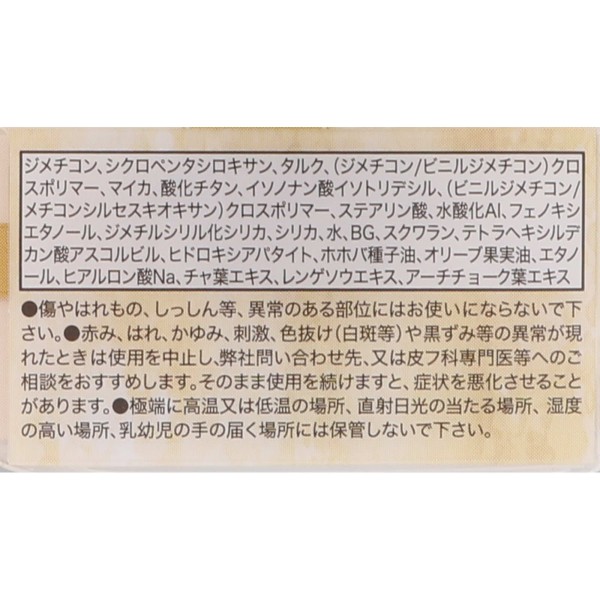 ジメチコン、シクロペンタシロキサン、タルク、(ジメチコン/ビニルジメチコン)クロ
スポリマー、マイカ、酸化チタン、イソノナン酸イソトリデシル、(ビニルジメチコン/
メチコンシルセスキオキサン)クロスポリマー、ステアリン酸、水酸化Al、フェノキシ
エタノール、ジメチルシリル化シリカ、シリカ、水、BG、スクワラン、テトラヘキシルデ
カン酸アスコルビル、ヒドロキシアパタイト、ホホバ種子油、オリーブ果実油、エタノ
ール、ヒアルロン酸Na、チャ葉エキス、レンゲソウエキス、アーチチョーク葉エキス
●傷やはれもの、しっしん等、異常のある部位にはお使いにならないで下
さい。●赤み、はれ、かゆみ、刺激、色抜け(白斑等)や黒ずみ等の異常が現
れたときは使用を中止し、弊社問い合わせ先、又は皮フ科専門医等へのご
相談をおすすめします。そのまま使用を続けますと、症状を悪化させることが
があります。●極端に高温又は低温の場所、直射日光の当たる場所、湿度
の高い場所、乳幼児の手の届く場所には保管しないで下さい。